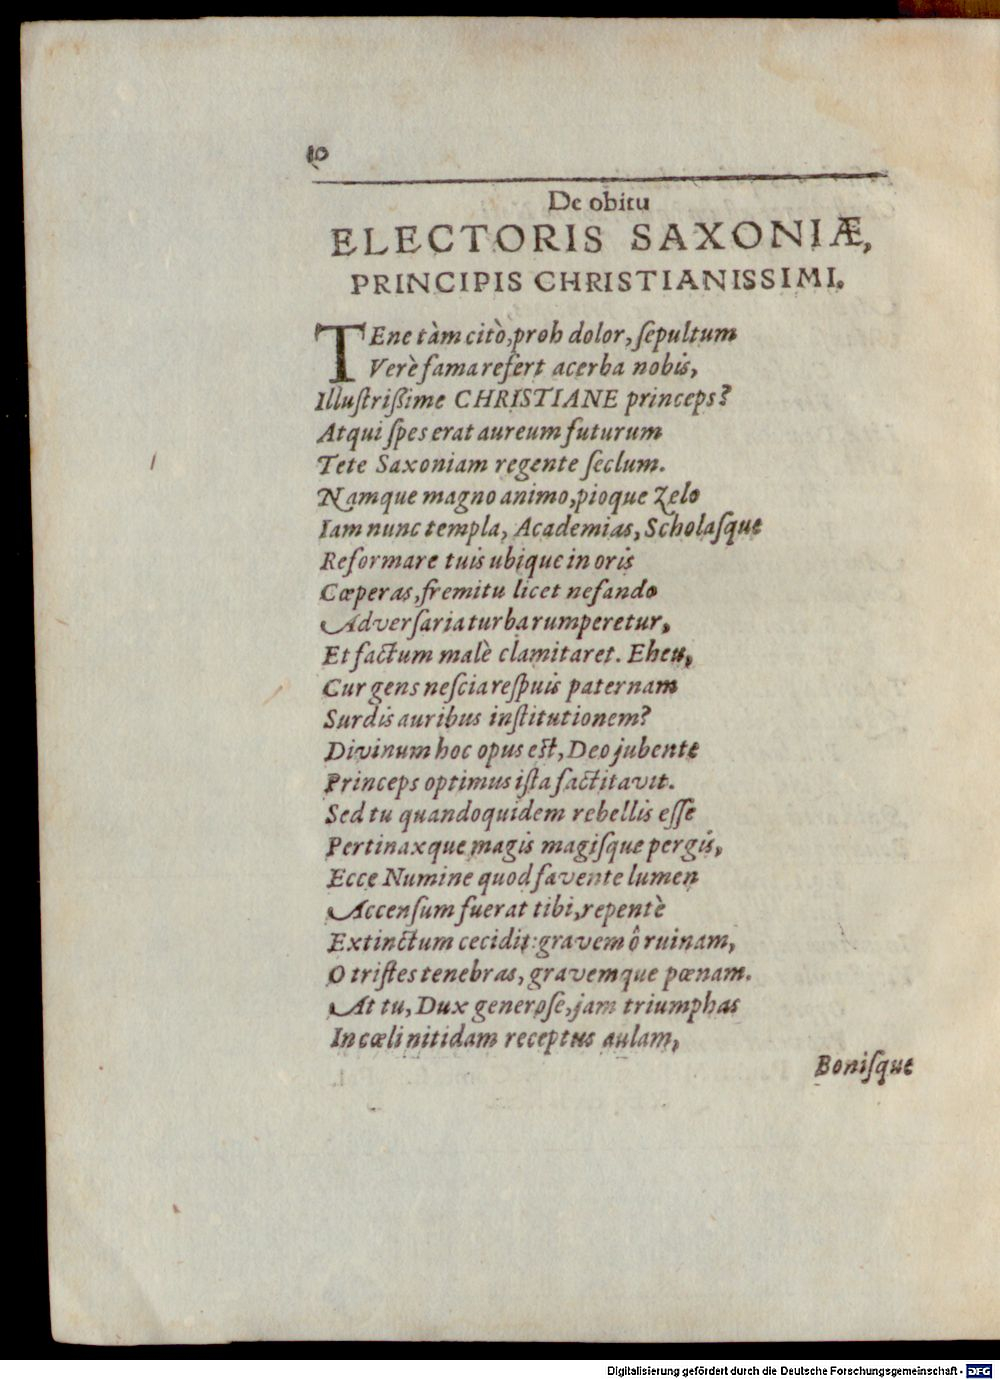 10
De obitu
ELECTORIS SAXONIÆ,
PRINCIPIS CHRISTIANISSIMI.
TEne tàm citò, proh dolor, ſepultum
Verè fama refert acerba nobis,
Illuſtriſſime CHRISTIANE princeps?
Atqui ſpes erat aureum futurum
Tete Saxoniam regente ſeclum.
Namque magno animo, pioque Zelo
Iam nunc templa, Academias, Scholaſque
Reformare tuis ubique in oris
Cœperas, fremitu licet nefando
Adverſaria turba rumperetur,
Et factum malè clamitaret. Eheu,
Cur gens neſcia reſpuis paternam
Surdis auribus inſtitutionem?
Divinum hoc opus eſt, Deo jubente
Princeps optimus iſta factitavit.
Sed tu quandoquidem rebellis eſſe
Pertinaxque magis magiſque pergis,
Ecce Numine quod favente lumen
Accenſum fuerat tibi, repentè
Extinctum cecidit: gravem ô ruinam,
O triſtes tenebras, gravemque pœnam.
At tu, Dux generoſe, jam triumphas
In cœli nitidam receptus aulam,
Boniſque
Digitalisierung gefördert durch die Deutsche Forschungsgemeinschaft - DFG